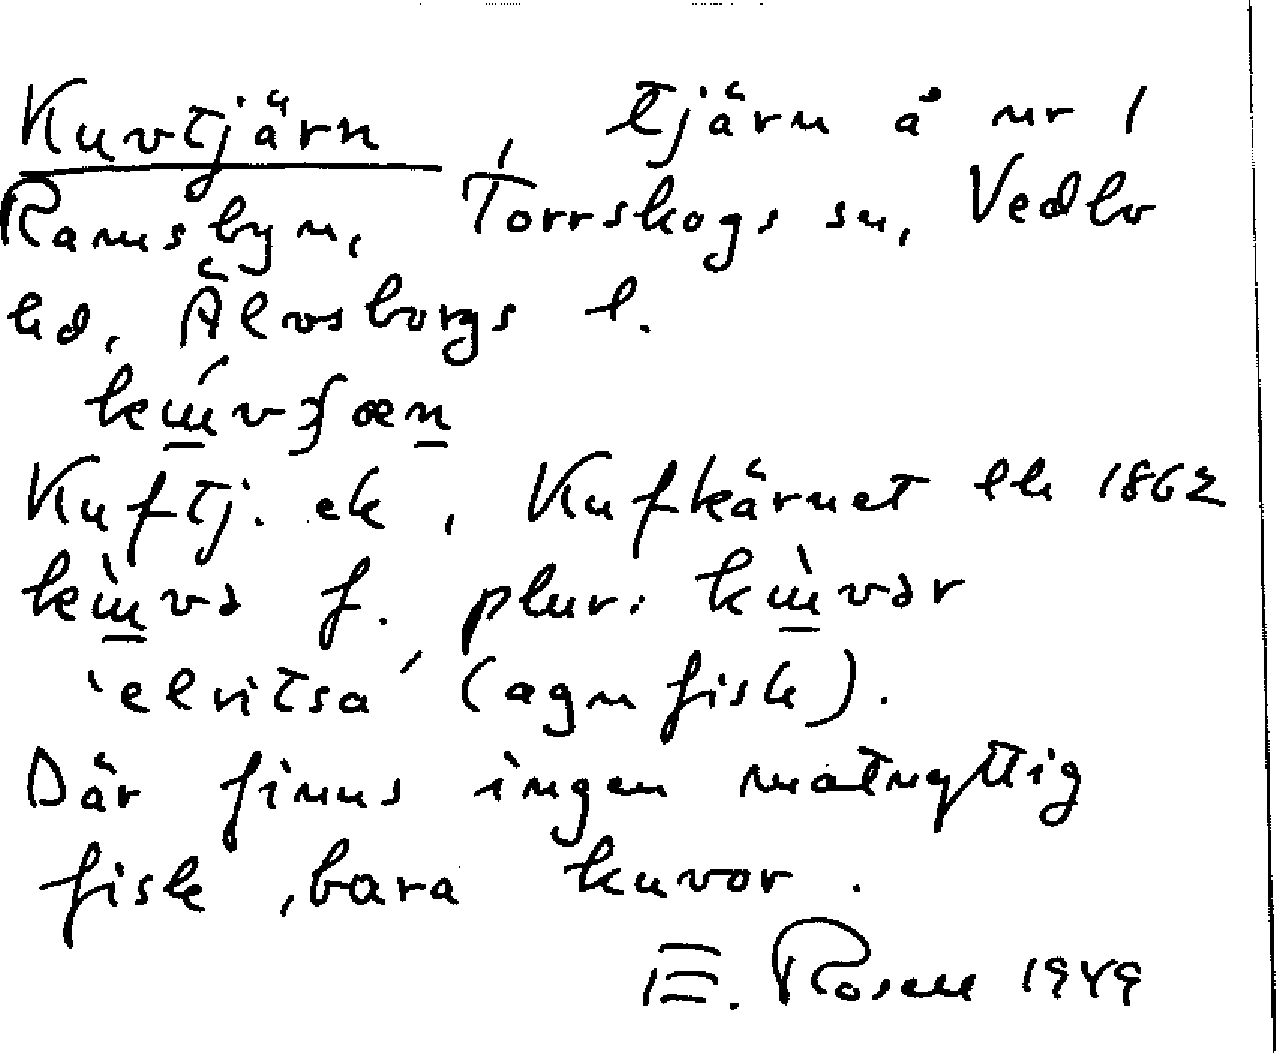 Kuvtjärn, tjärn å nr 1
Ramsbyn, Torrskogs sn, Vedbo
hd, Älvsborgs l.
Kuftj. ek, Kufkärnet lh 1862
f. plur.
'elritsa' (agnfisk).
Där finns ingen matnyttig
fisk, bara kuvor.
E. Rosell 1949